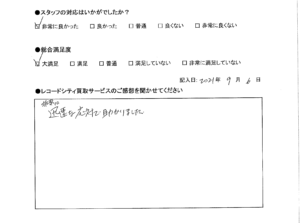 ●スタッフの対応はいかがでしたか？
☑非常に良かった □良かった □普通 □良くない □非常に良くない
●総合満足度
☑大満足 □満足 □普通 □満足していない □非常に満足していない
記入日:2021年 9月 6日
●レコードシティ買取サービスのご感想を聞かせてください
迅速な応対で助かりました